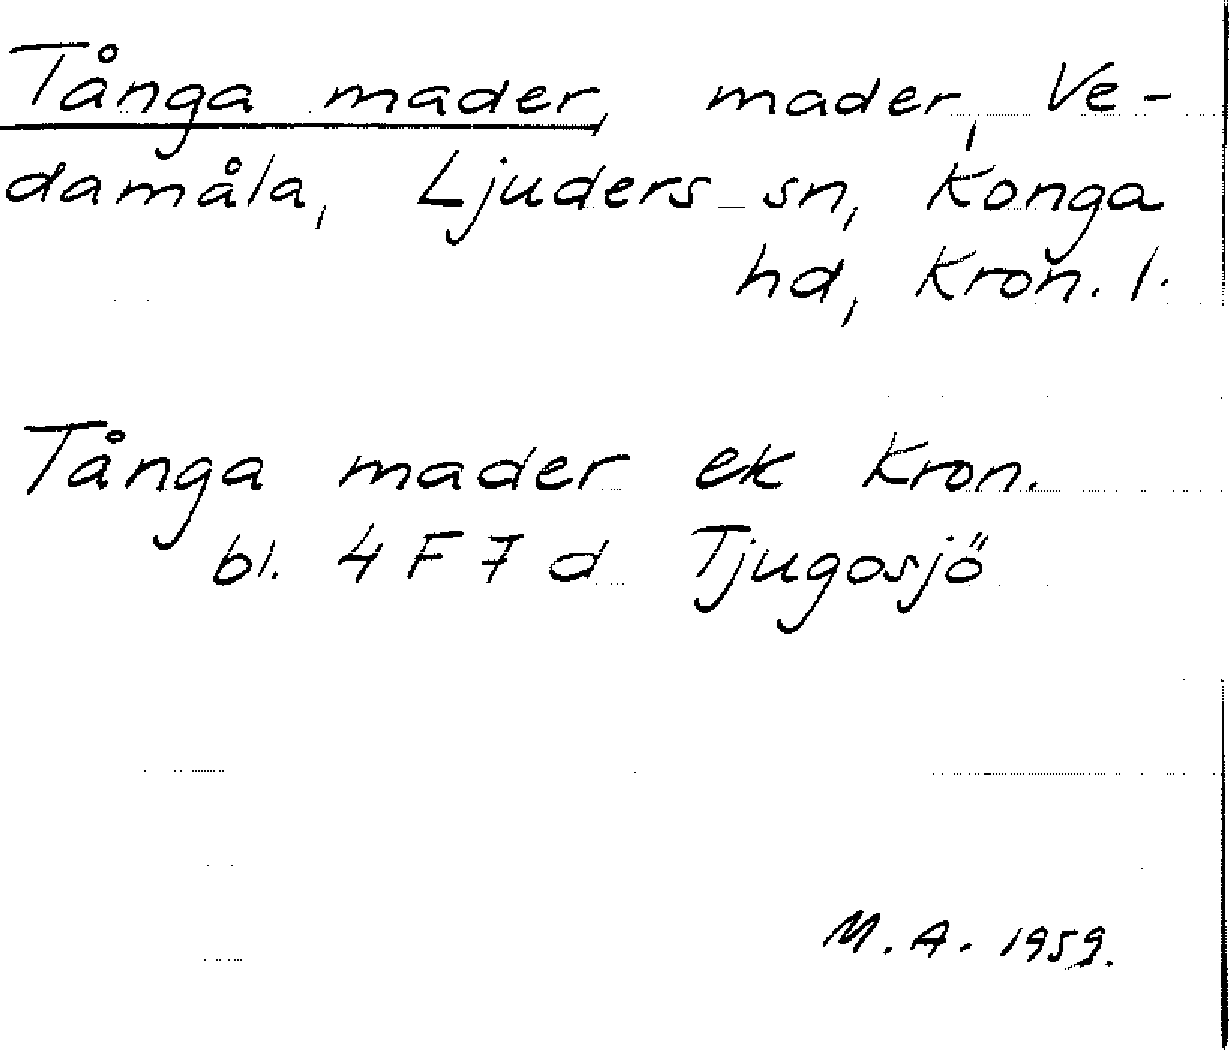 Tånga mader, mader, Ve-
damåla, Ljuders sn, Konga
hd, Kron. l.
Tånga mader ek Kron.
bl. 4 F 7 d Tjugosjö
M. A. 1959.